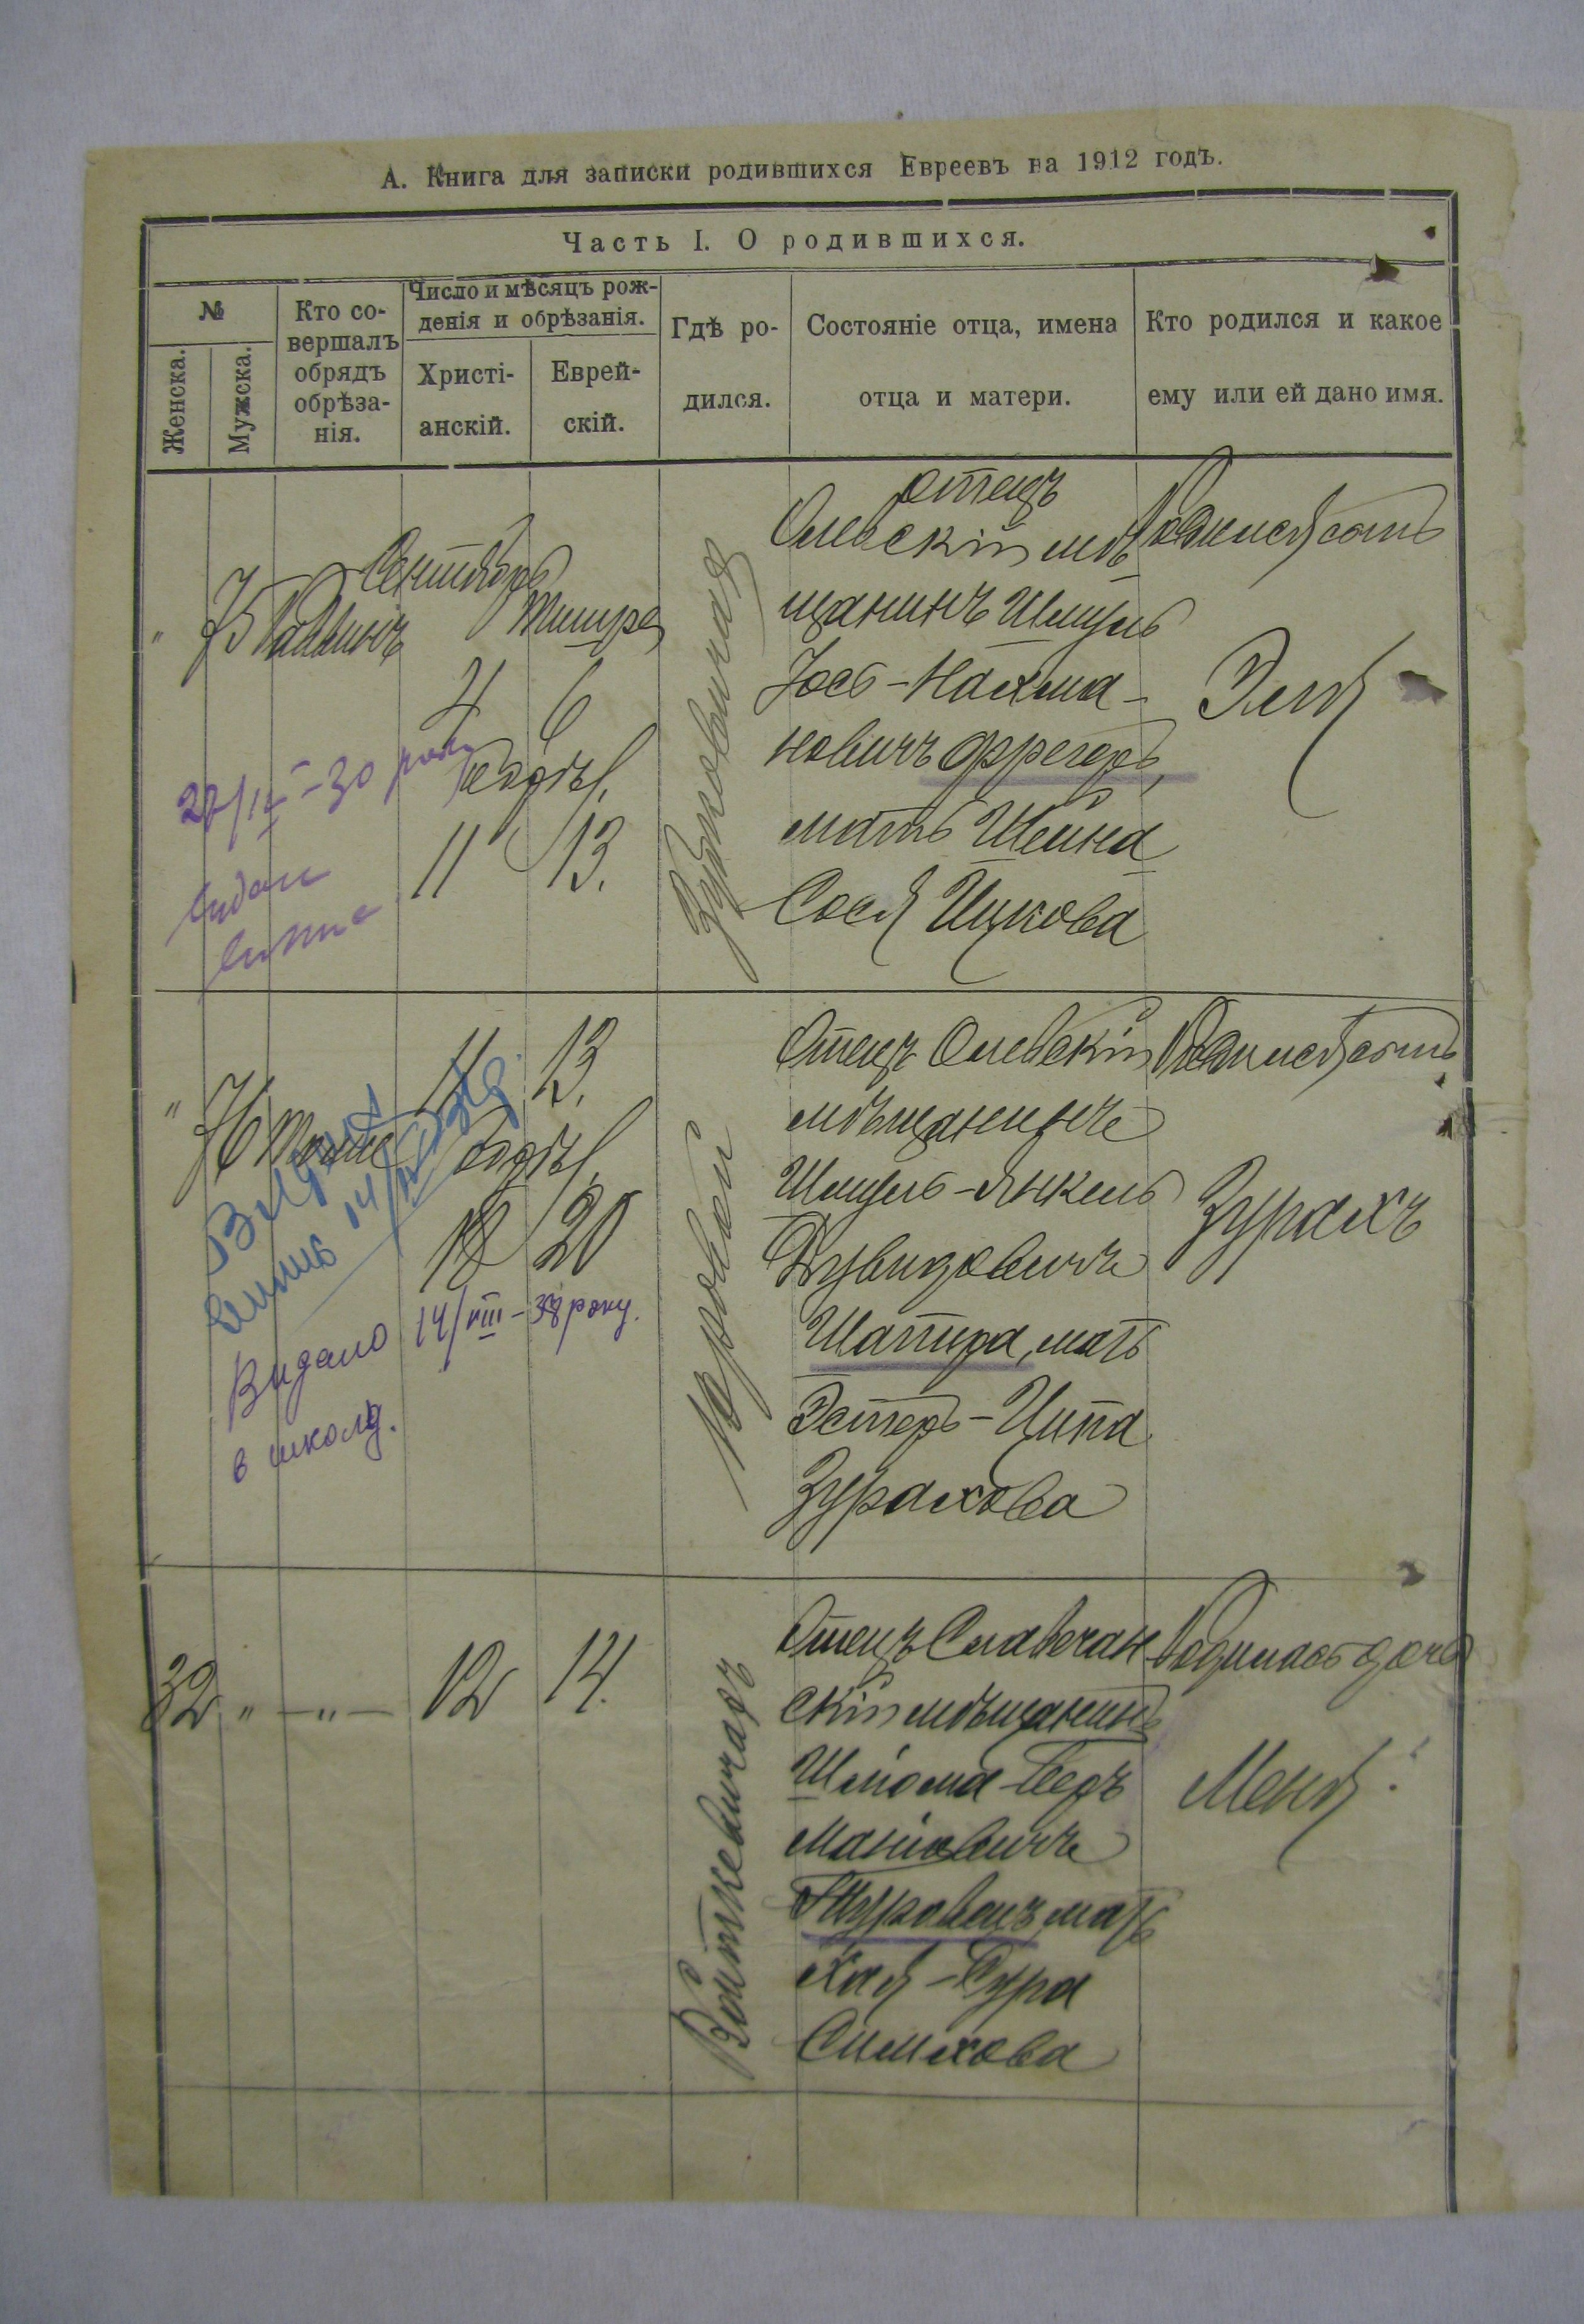 А. Книга для записки родившихся Евреевъ на 1912 годъ.
Часть I. О родившихся.
№
Женска.
Мужска.
Кто со-
вершалъ
обрядъ
обрѣза-
нія.
Число и мѣсяцъ рож-
денія и обрѣзанія.
Христі-
анскій.
Еврей-
скій.
Гдѣ ро-
дился.
Состояніе отца, имена
отца и матери.
Кто родился и какое
ему или ей дано имя.
"
75
Раввинъ
Сентябрь
Тишре
4 6
обрѣз.
11 13.
отецъ
Олевскій мѣ
щанинъ Шмуль
Іось-Нахма-
новичъ Фрегеръ,
мать Шейна
Сося Ицкова
Родился сынъ
Эля
видали
витис
"
76 Тоже
11 13.
обрѣз.
18 20
Видано 14/VIII-38 року.
в школу.
Отецъ Олевскій
мѣщанинъ
Шмуль-Янкель
Дувидовичъ
Шапира, мать
Эстеръ-Ципа
Зурахова
Родился сынъ
Зурахъ
32 " — " — 12 14.
Войткевичахъ
Отецъ Словечан
скій мѣщанинъ
Шлёма-Беръ
Маніовичъ
Туровецъ мать
Хая-Сура
Симхова
Родилась дочь
Меня